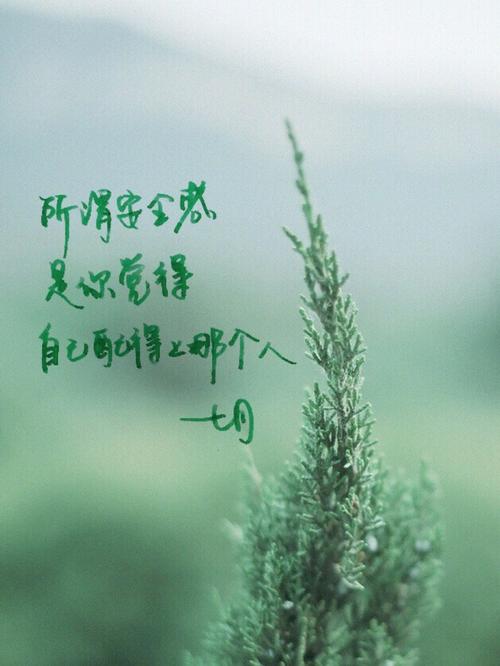 所谓安全感
是你觉得
自己配得上那个人
一七月